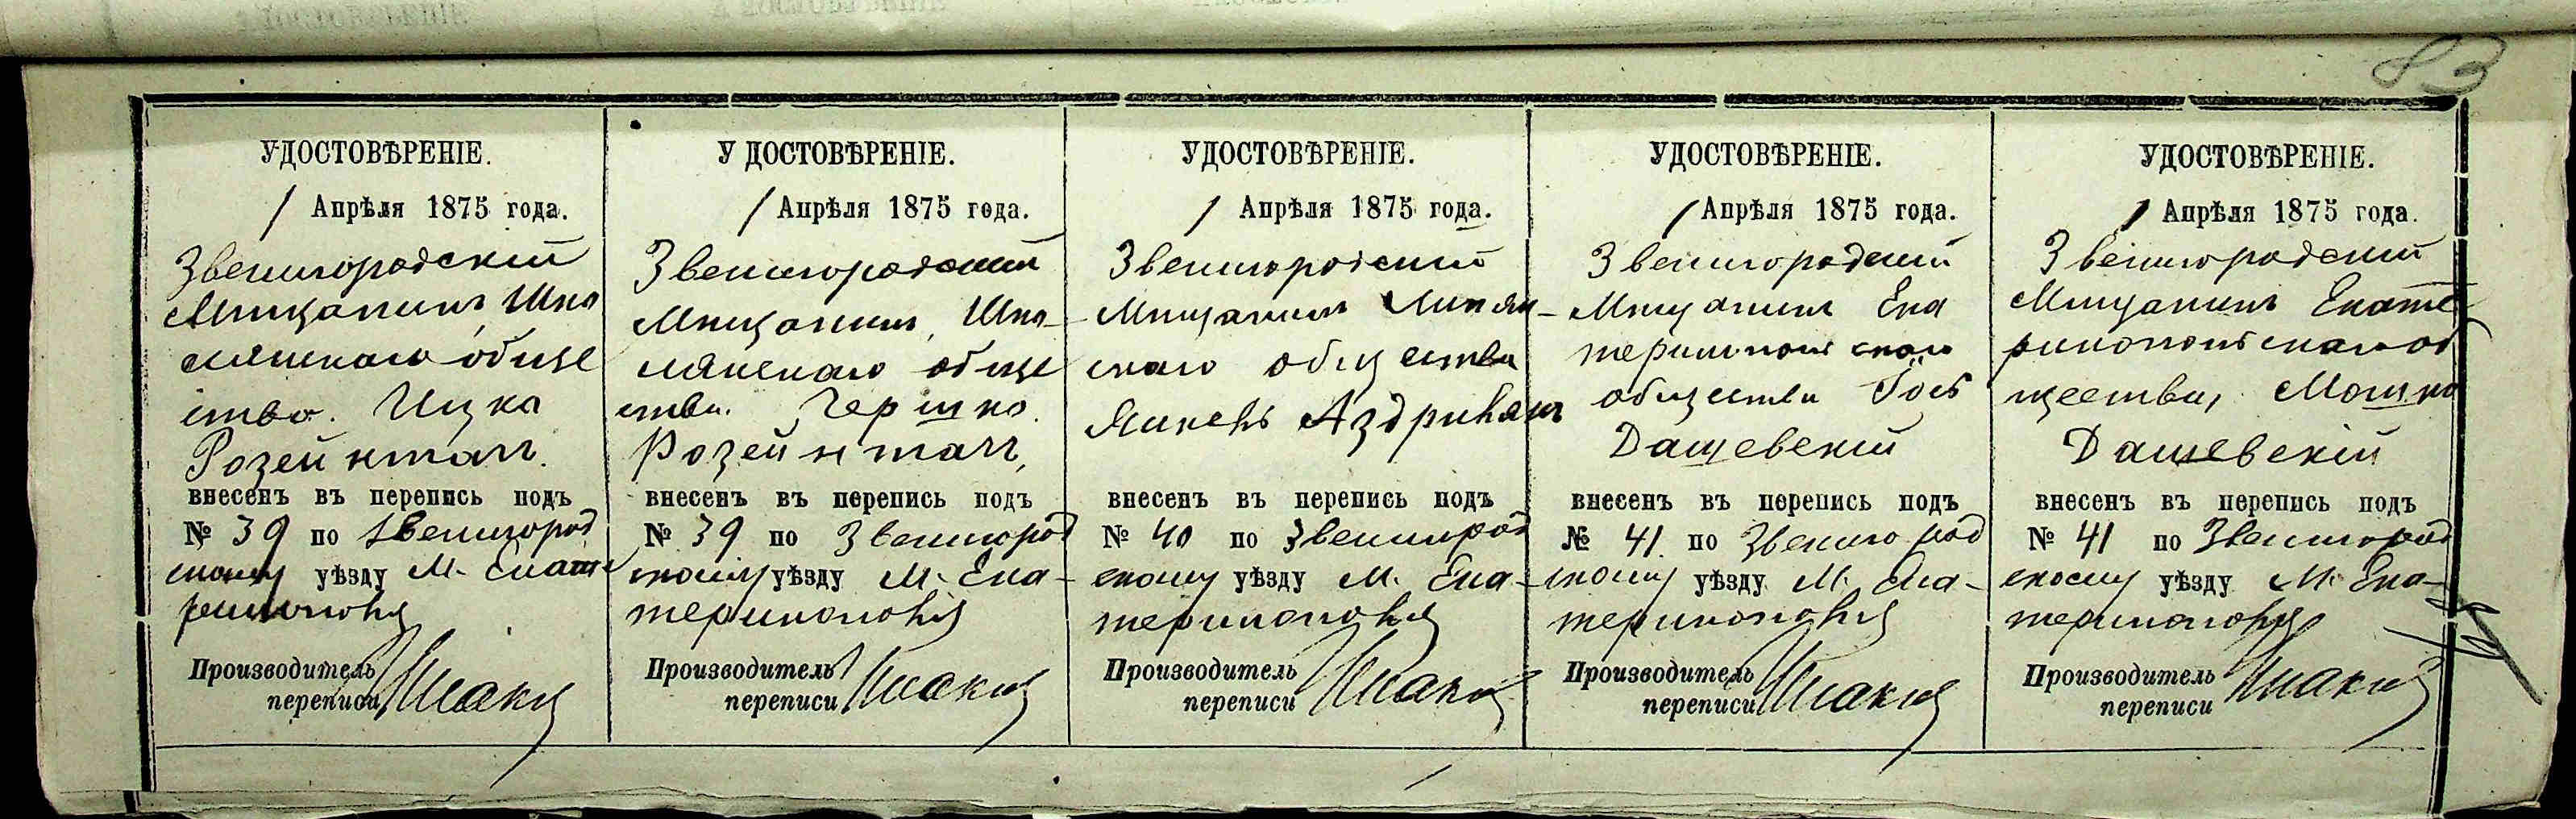 83
УДОСТОВѢРЕНІЕ.
1 Апрѣля 1875 года.
Звенигородскій
Мѣщанинъ Шпо
лянскаго обще
ства. Ицко
Розейнталъ.
внесенъ въ перепись подъ
№ 39 по Звенигород
скому уѣзду М. Екате
ринополю
Производитель
переписи
УДОСТОВѢРЕНІЕ.
1 Апрѣля 1875 года.
Звенигородскій
Мѣщанинъ, Шпо-
лянскаго обще
ства. Гершко.
Розейнталъ,
внесенъ въ перепись подъ
№ 39 по Звенигород
скому уѣзду М. Ека-
теринополю
Производитель
переписи
УДОСТОВѢРЕНІЕ.
1 Апрѣля 1875 года.
Звенигородский
Мѣщанинъ Лисян-
скаго общества
Янкель
внесенъ въ перепись подъ
№ 40 по Звенигород
скому уѣзду М. Ека-
теринополю
Производитель
переписи
УДОСТОВѢРЕНІЕ.
1 Апрѣля 1875 года.
Звенигородский
Мѣщанинъ Ека
теринопольскаго
общества Іось
Дашевскій
внесенъ въ перепись подъ
№ 41. по Звенигород
скому уѣзду М. Ека-
теринополю
Производитель
переписи
УДОСТОВѢРЕНІЕ.
1 Апрѣля 1875 года.
Звенигородский
Мѣщанинъ Екате
ринопольскаго об
щества, Мошко
Дашевскій
внесенъ въ перепись подъ
№ 41 по Звенигород
скому уѣзду М. Ека-
теринополю
Производитель
переписи